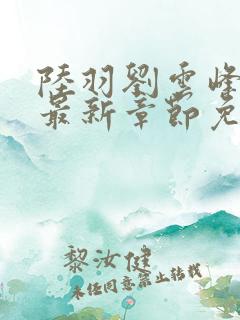 陸羽劉雲峰
最新章節免
黎汝健
未任同意禁止转载